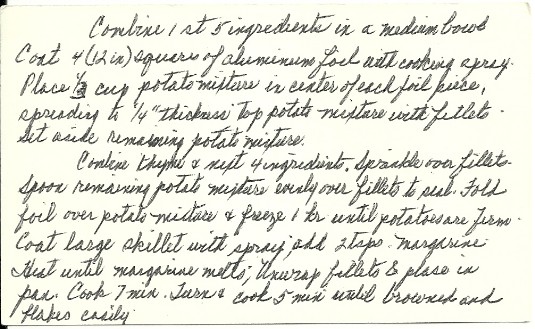 Combine 1st 5 ingredients in a medium bowl
Coat 4 (12 in) squares of aluminum foil with cooking spray.
Place cup potato mixture in center of each foil piece,
spreading to 1/4" thickness top potato mixture with fillets.
Set aside remaining potato mixture.
Combine thyme & next 4 ingredients. Sprinkle over fillets.
Spoon remaining potato mixture evenly over fillets to seal. Fold
foil over potato mixture & freeze 1 hr until potatoes are firm.
Coat large skillet with spray; add 2 tsps. margarine
Heat until margarine melts; Unwrap fillets & place in
pan. Cook 7 min. Turn & cook 5 min until browned and
flakes easily